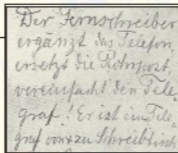 Der Fernschreiber
ergänzt das Telefon,
ersetzt die Rohrpost,
vereinfacht den Tele-
graf! Er ist ein Tele-
graf von zu Schreibtisch